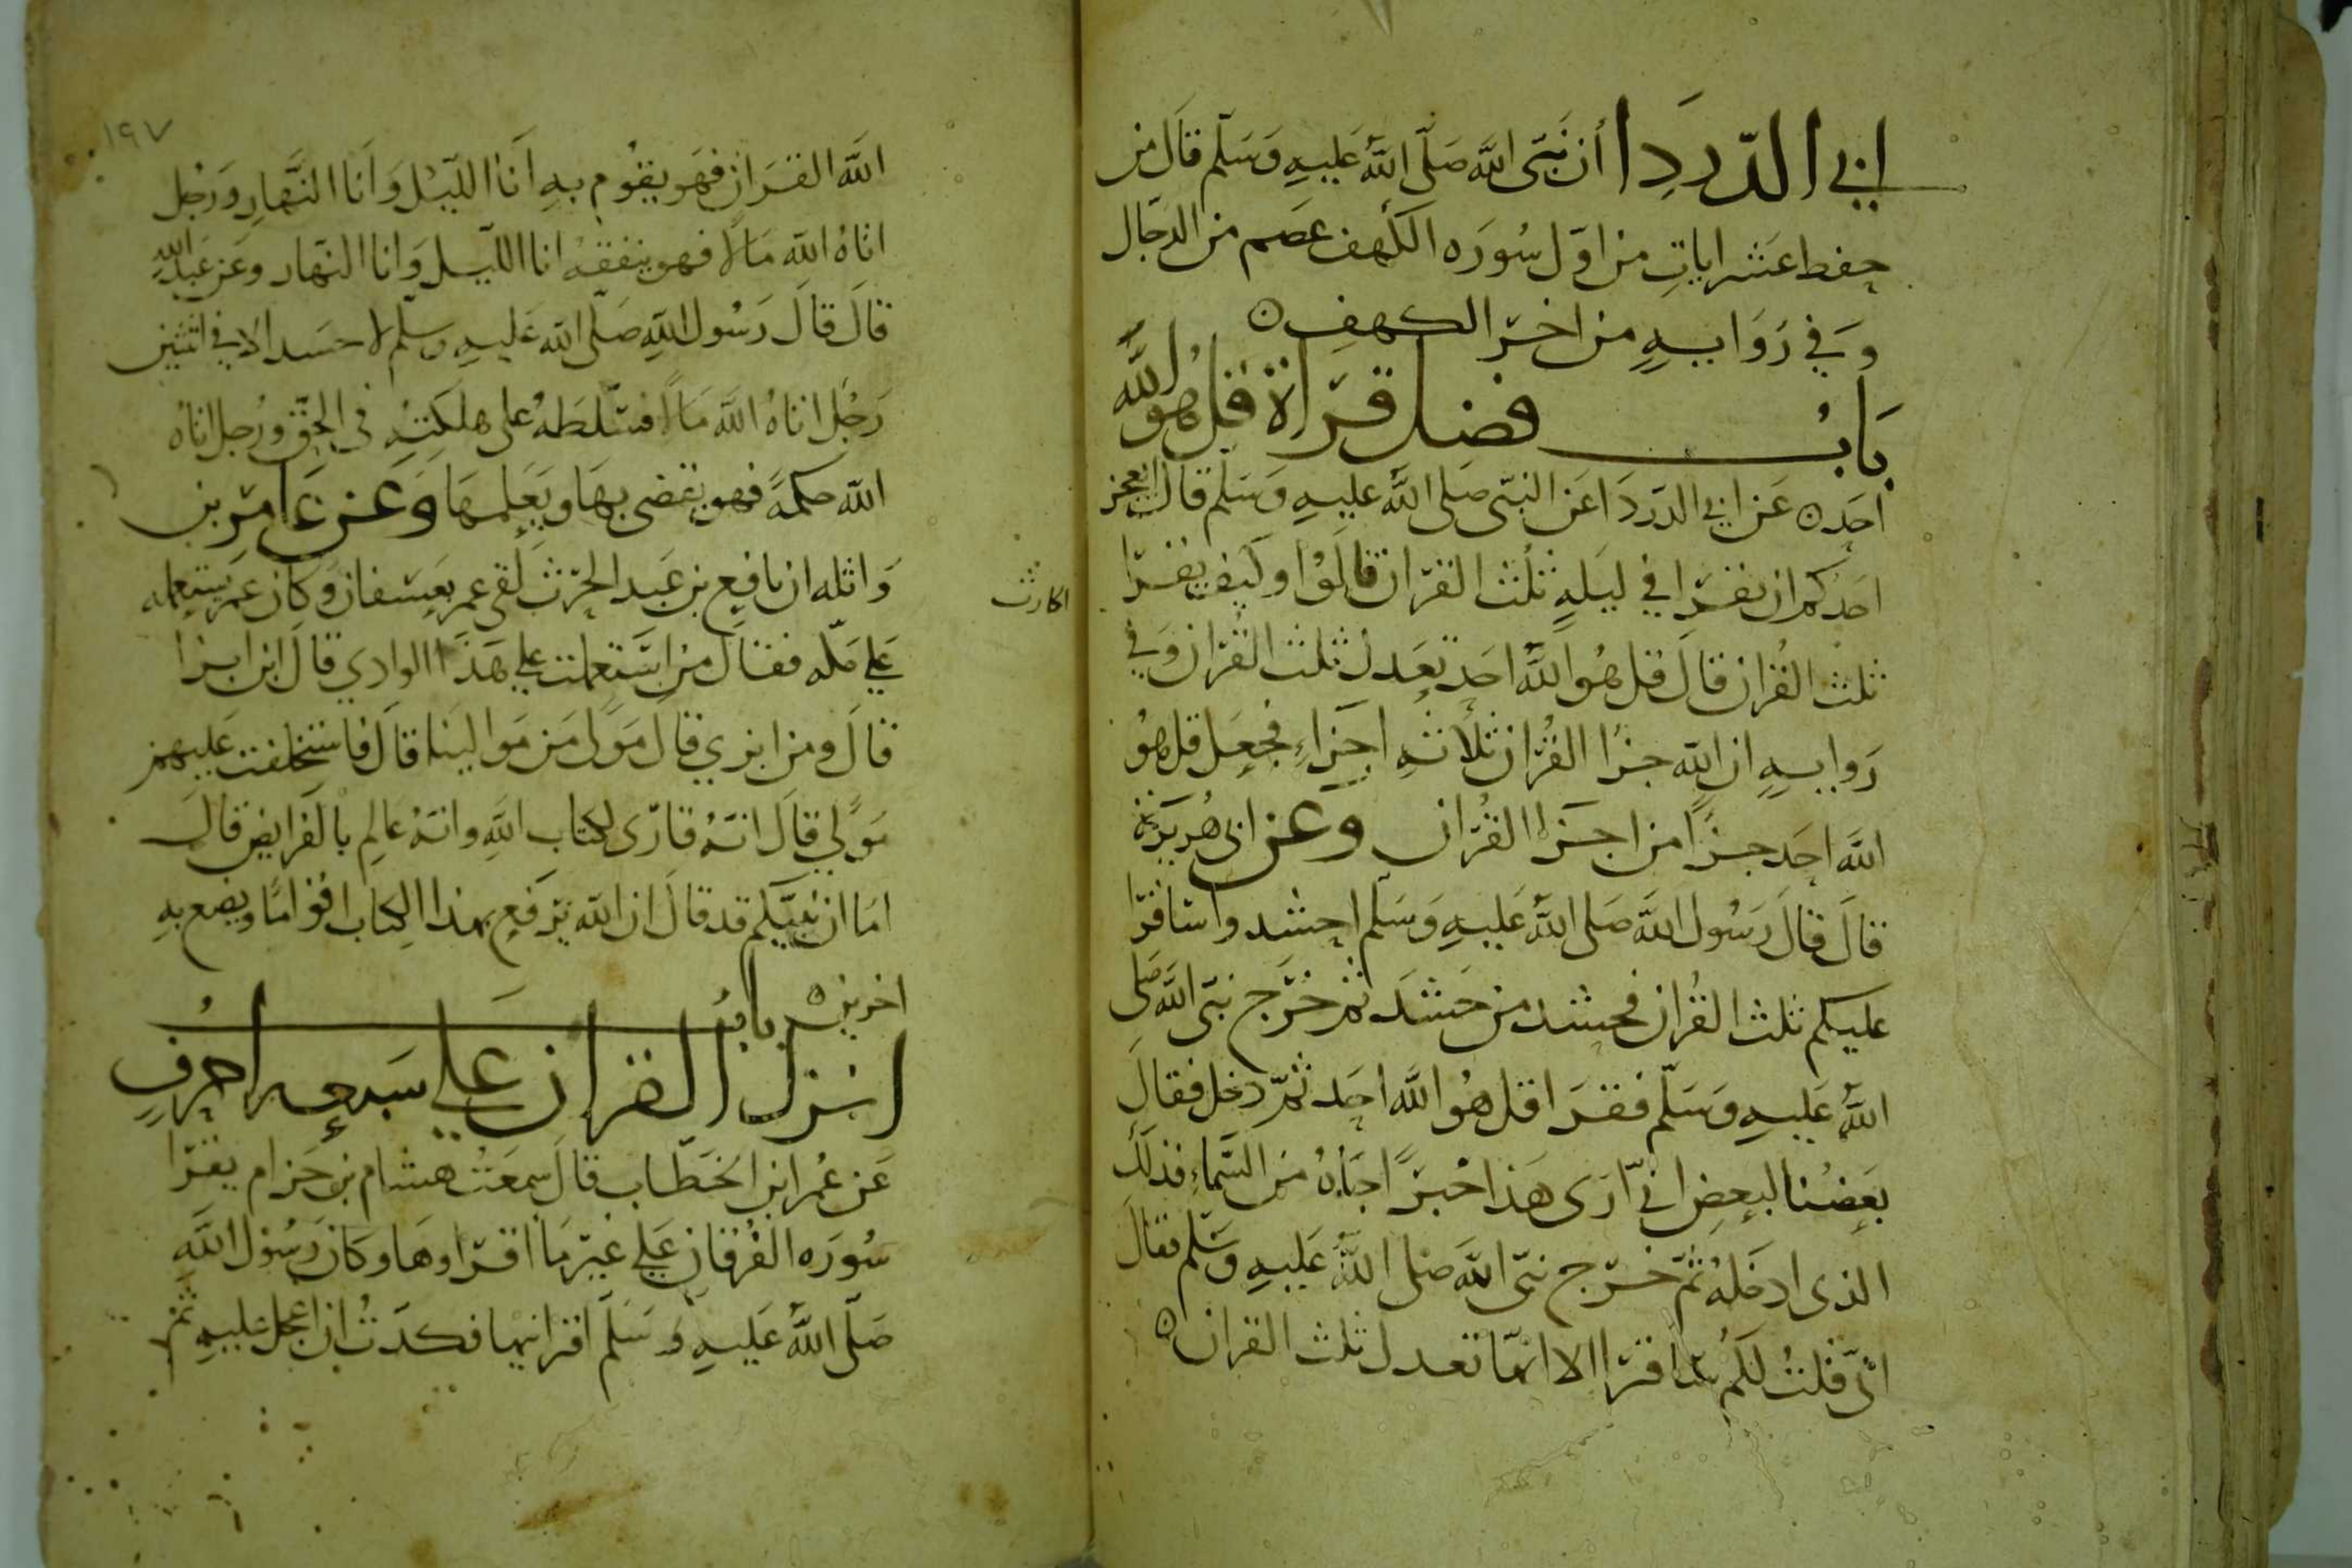 ابي الدردا أن نبي الله صلى الله عليه وسلم قال من
حفظ عشر ايات من اول سوره الكهف عصم من الدجال
وفي رواية من اخر الكهف ه
باب فضل قراة قل هو الله
احد ه عن ابي الدردا عن النبي صلى الله عليه وسلم قال ايعجز
احدكم ان يقرا في ليلة ثلث القران قالوا وكيف يقرا
ثلث القران قال قل هو الله احد تعدل ثلث القران وفي
رواية ان الله جزا القران ثلاثة اجزاء فجعل قل هو
الله احد جزا من اجزا القران وعن ابي هريرة
قال قال رسول الله صلى الله عليه وسلم احشدوا ساقرا
عليكم ثلث القران فحشد من حشد ثم خرج نبي الله صلى
الله عليه وسلم فقرا قل هو الله احد ثم دخل فقال
بعضنا لبعض اني أرى هذا خبرا جاه من السماء فذلك
الذى ادخله ثم خرج نبي الله صلى الله عليه وسلم فقال
اني قلت لكم ساقرا الا انها تعدل ثلث القران ه
١٩٧
الله القران فهو يقوم به أنا الليل وأنا النهار ورجل
اتاه الله مالا فهو ينفقه انا الليل وانا النهار وعن عبد الله
قال قال رسول الله صلى الله عليه وسلم لا حسد الا في اثنتين
رجل اتاه الله مالا فسلطه على هلكته في الحق ورجل اتاه
الله حكمة فهو يقضى بها ويعلمها وعن عامر بن
واثله ان نافع بن عبد الحرث لقى عمر بعسفان وكان عمر يستعمله
الحارث
على مكه فقال من استعملت على هذا الوادي قال ابن ابزا
قال ومن ابزي قال مولى من موالينا قال فاستخلفت عليهم
مولي قال انه قارى لكتاب الله وانه عالم بالفرايض قال
اما ان نبيكم قد قال ان الله يرفع بهذا الكتاب اقواما ويضع به
اخرين ه باب
انزل القران على سبعه احرف
عن عمر ابن الخطاب قال سمعت هشام بن حزام يقرا
سوره الفرقان على غير ما اقراوها وكان رسول الله
صلى الله عليه وسلم اقرانيها فكدت ان اعجل عليه ثم